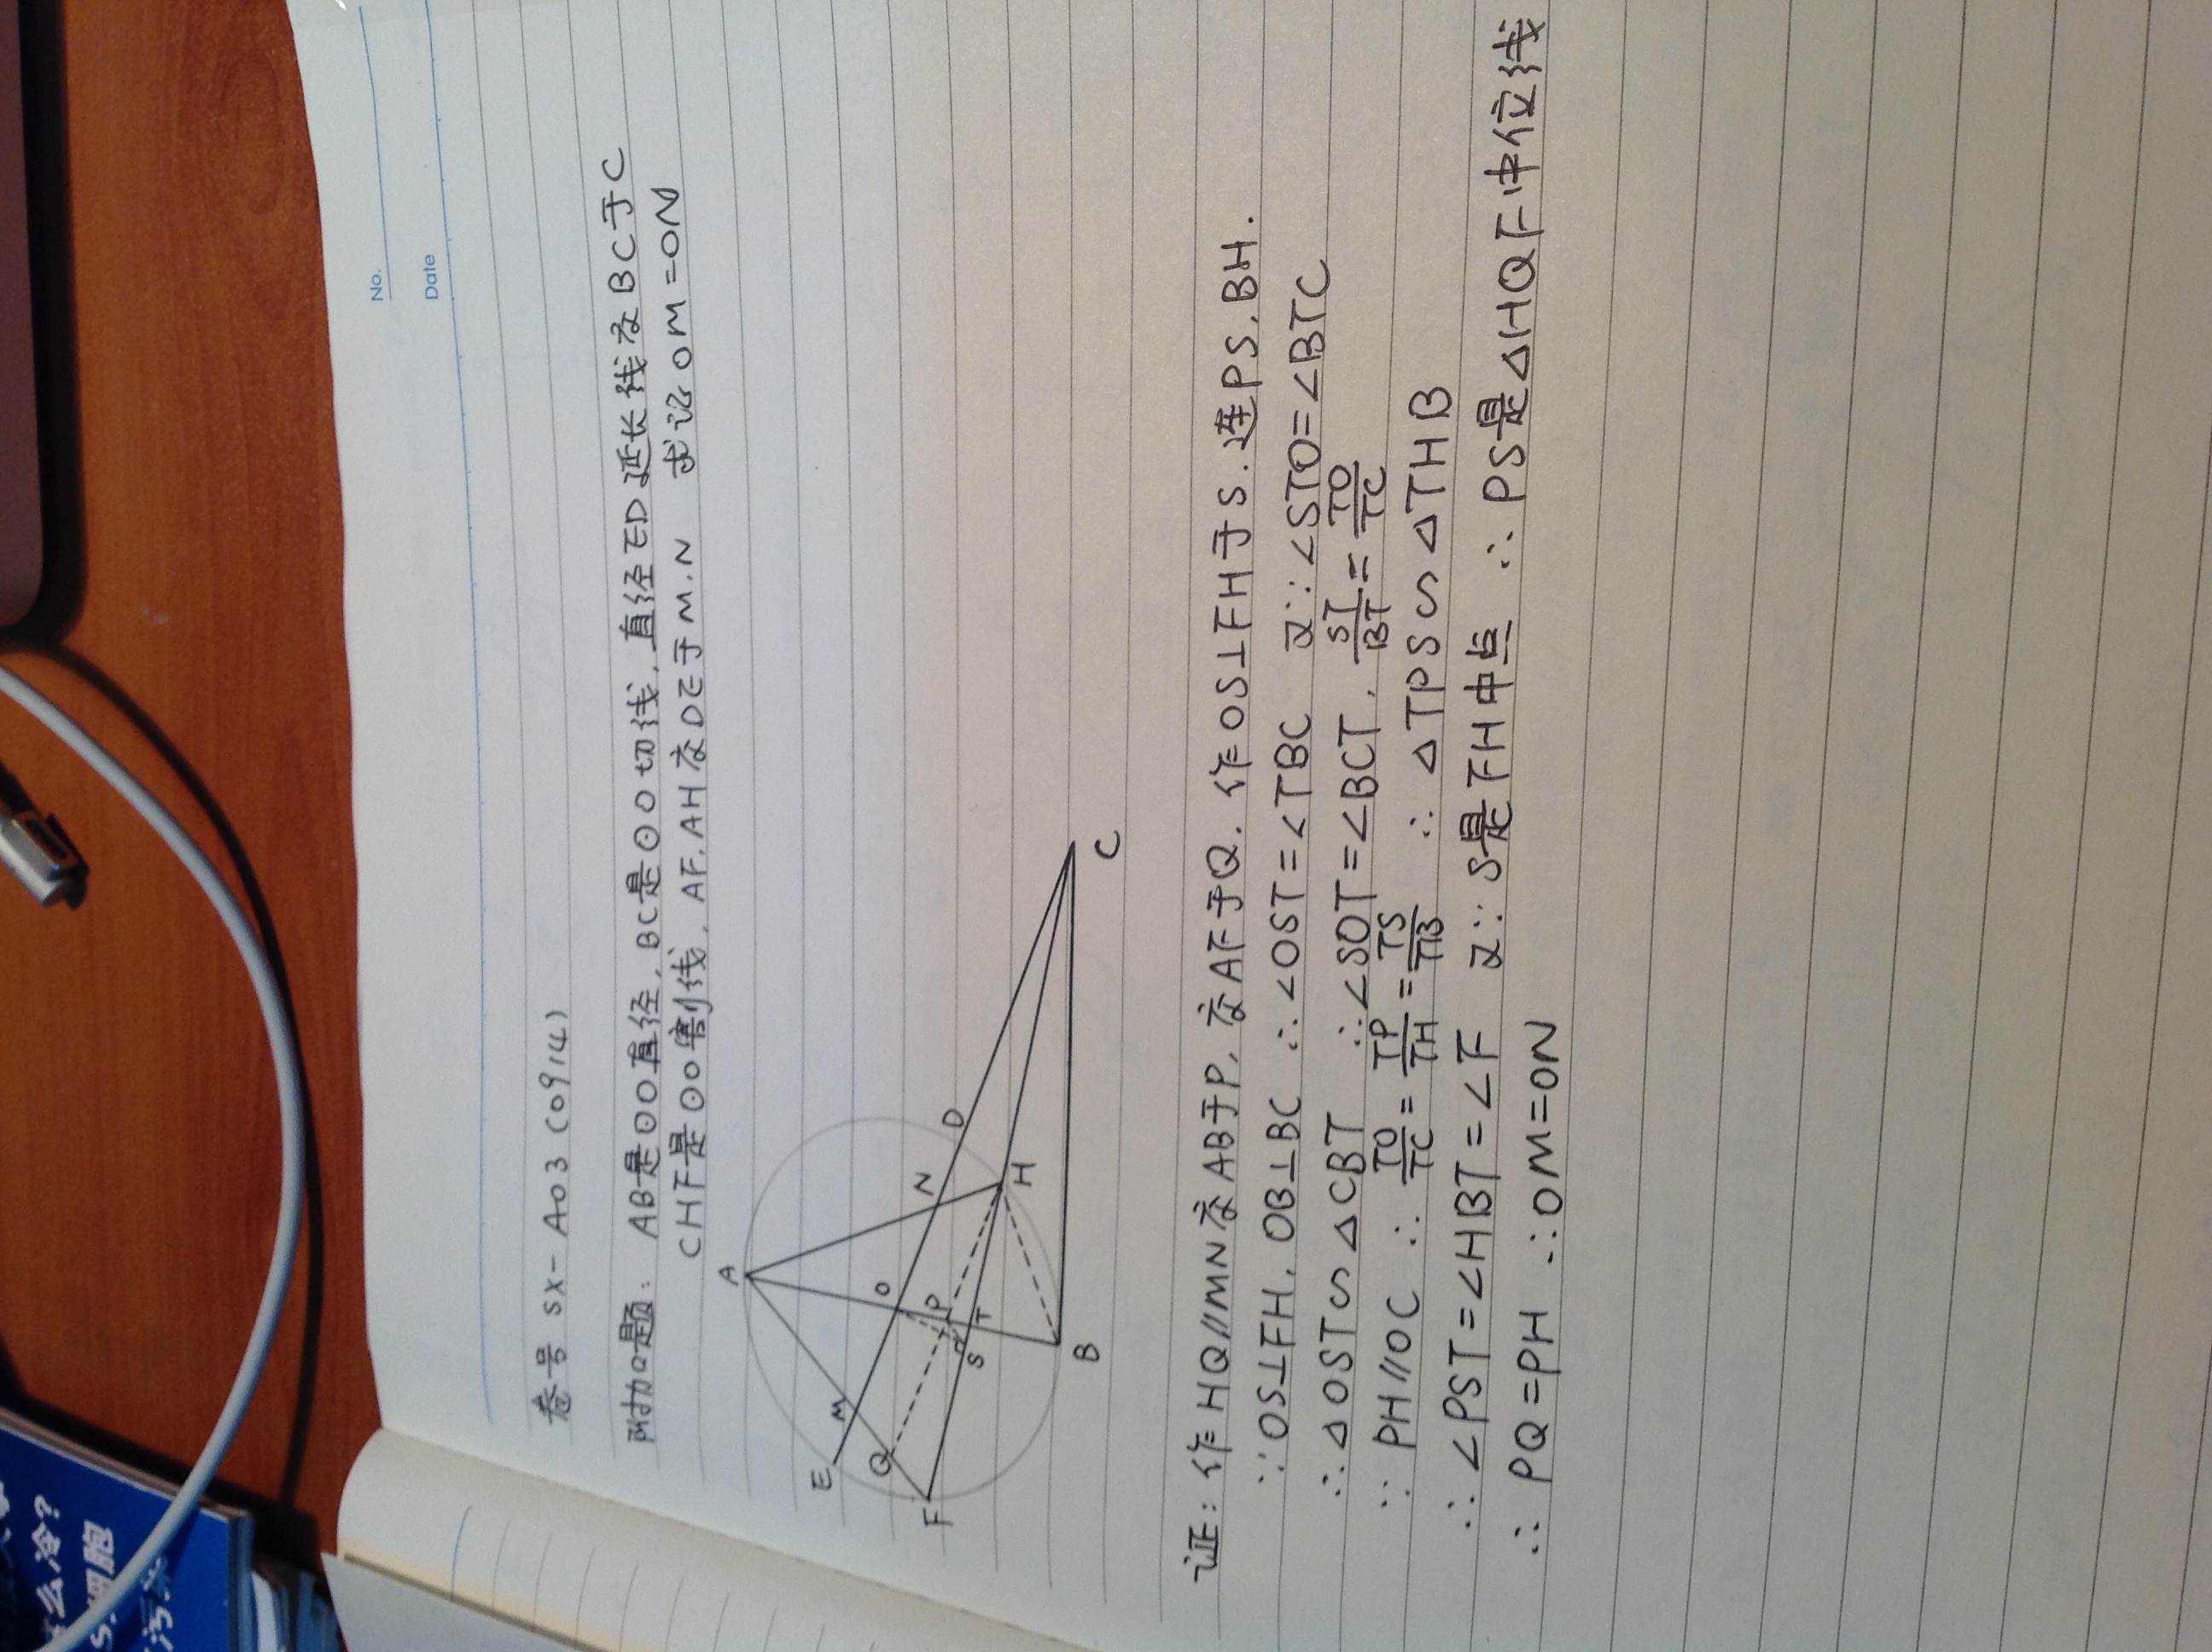 么冷?
S细胞
污染
No.
Date
卷号 SX-A03 (0914)
附加题: AB是⊙O直径, BC是⊙O切线, 直径ED延长线交BC于C
CHF是⊙O割线, AF, AH交DE于M, N 求证OM=ON
A
E
M
Q
O
F
P
N
D
S
T
H
B
C
证: 作HQ//MN交AB于P, 交AF于Q. 作OS⊥FH于S. 连PS, BH.
∵OS⊥FH, OB⊥BC ∴∠OST=∠TBC 又∵∠STO=∠BTC
∴△OST∽△CBT ∴∠SOT=∠BCT, ST/BT=TO/TC
∵PH//OC ∴TO/TC=TP/TH=TS/TB ∴△TPS∽△THB
∴∠PST=∠HBT=∠F 又∵S是FH中点 ∴PS是△HQF中位线
∴PQ=PH ∴OM=ON